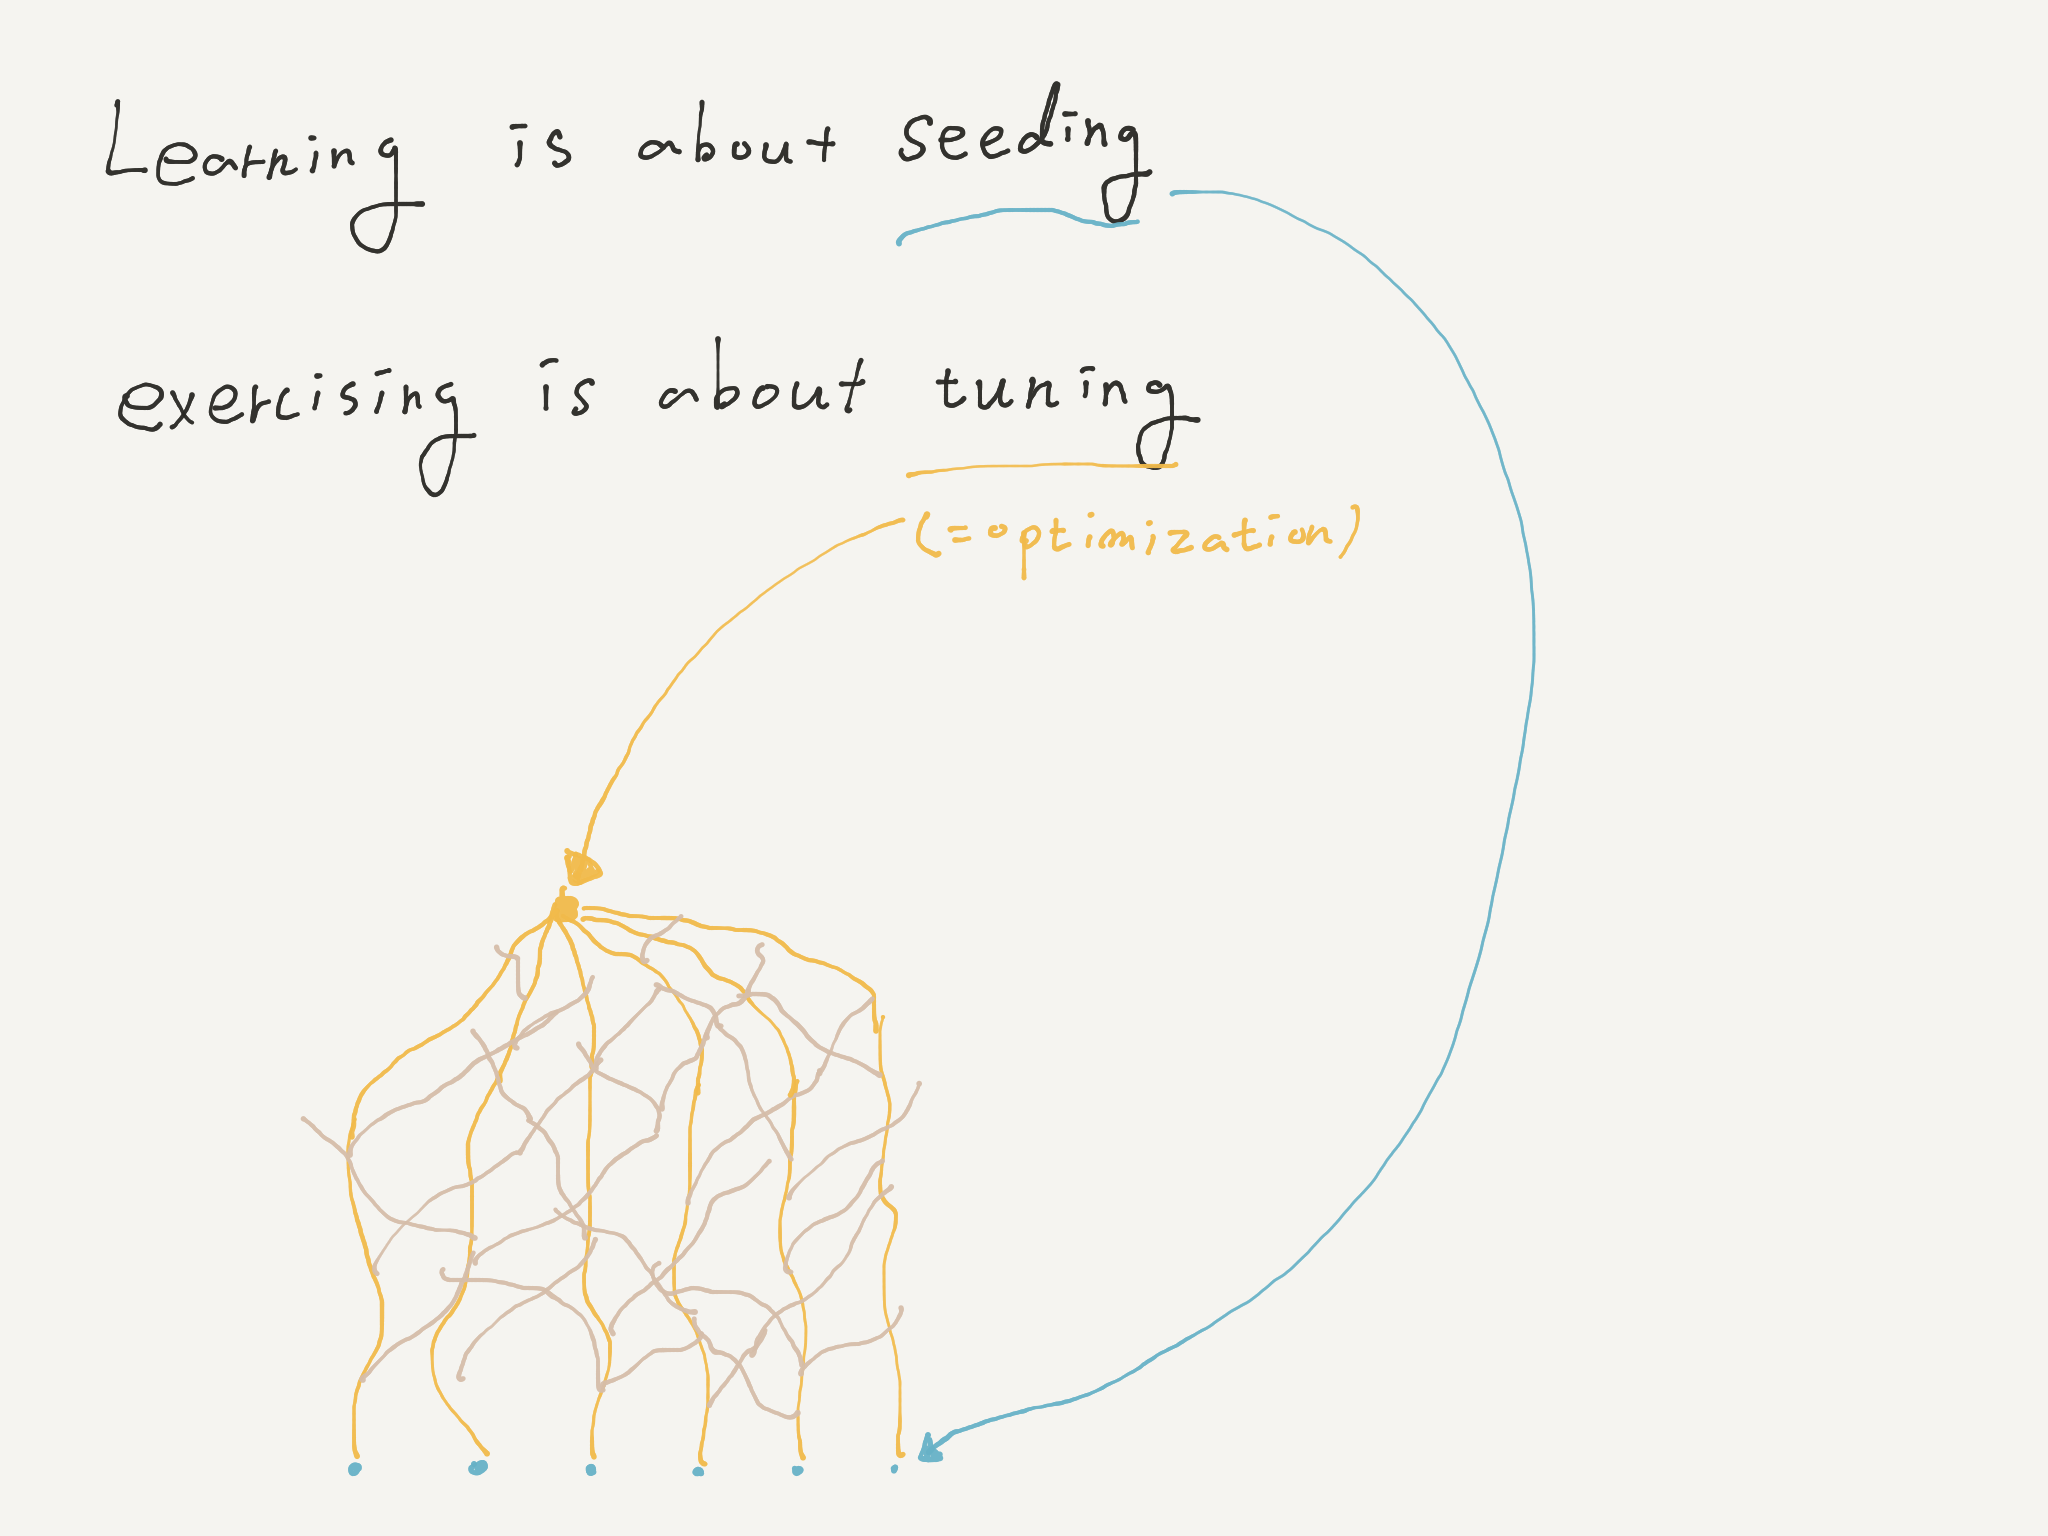 Learning is about seeding
exercising is about tuning
(=optimization)